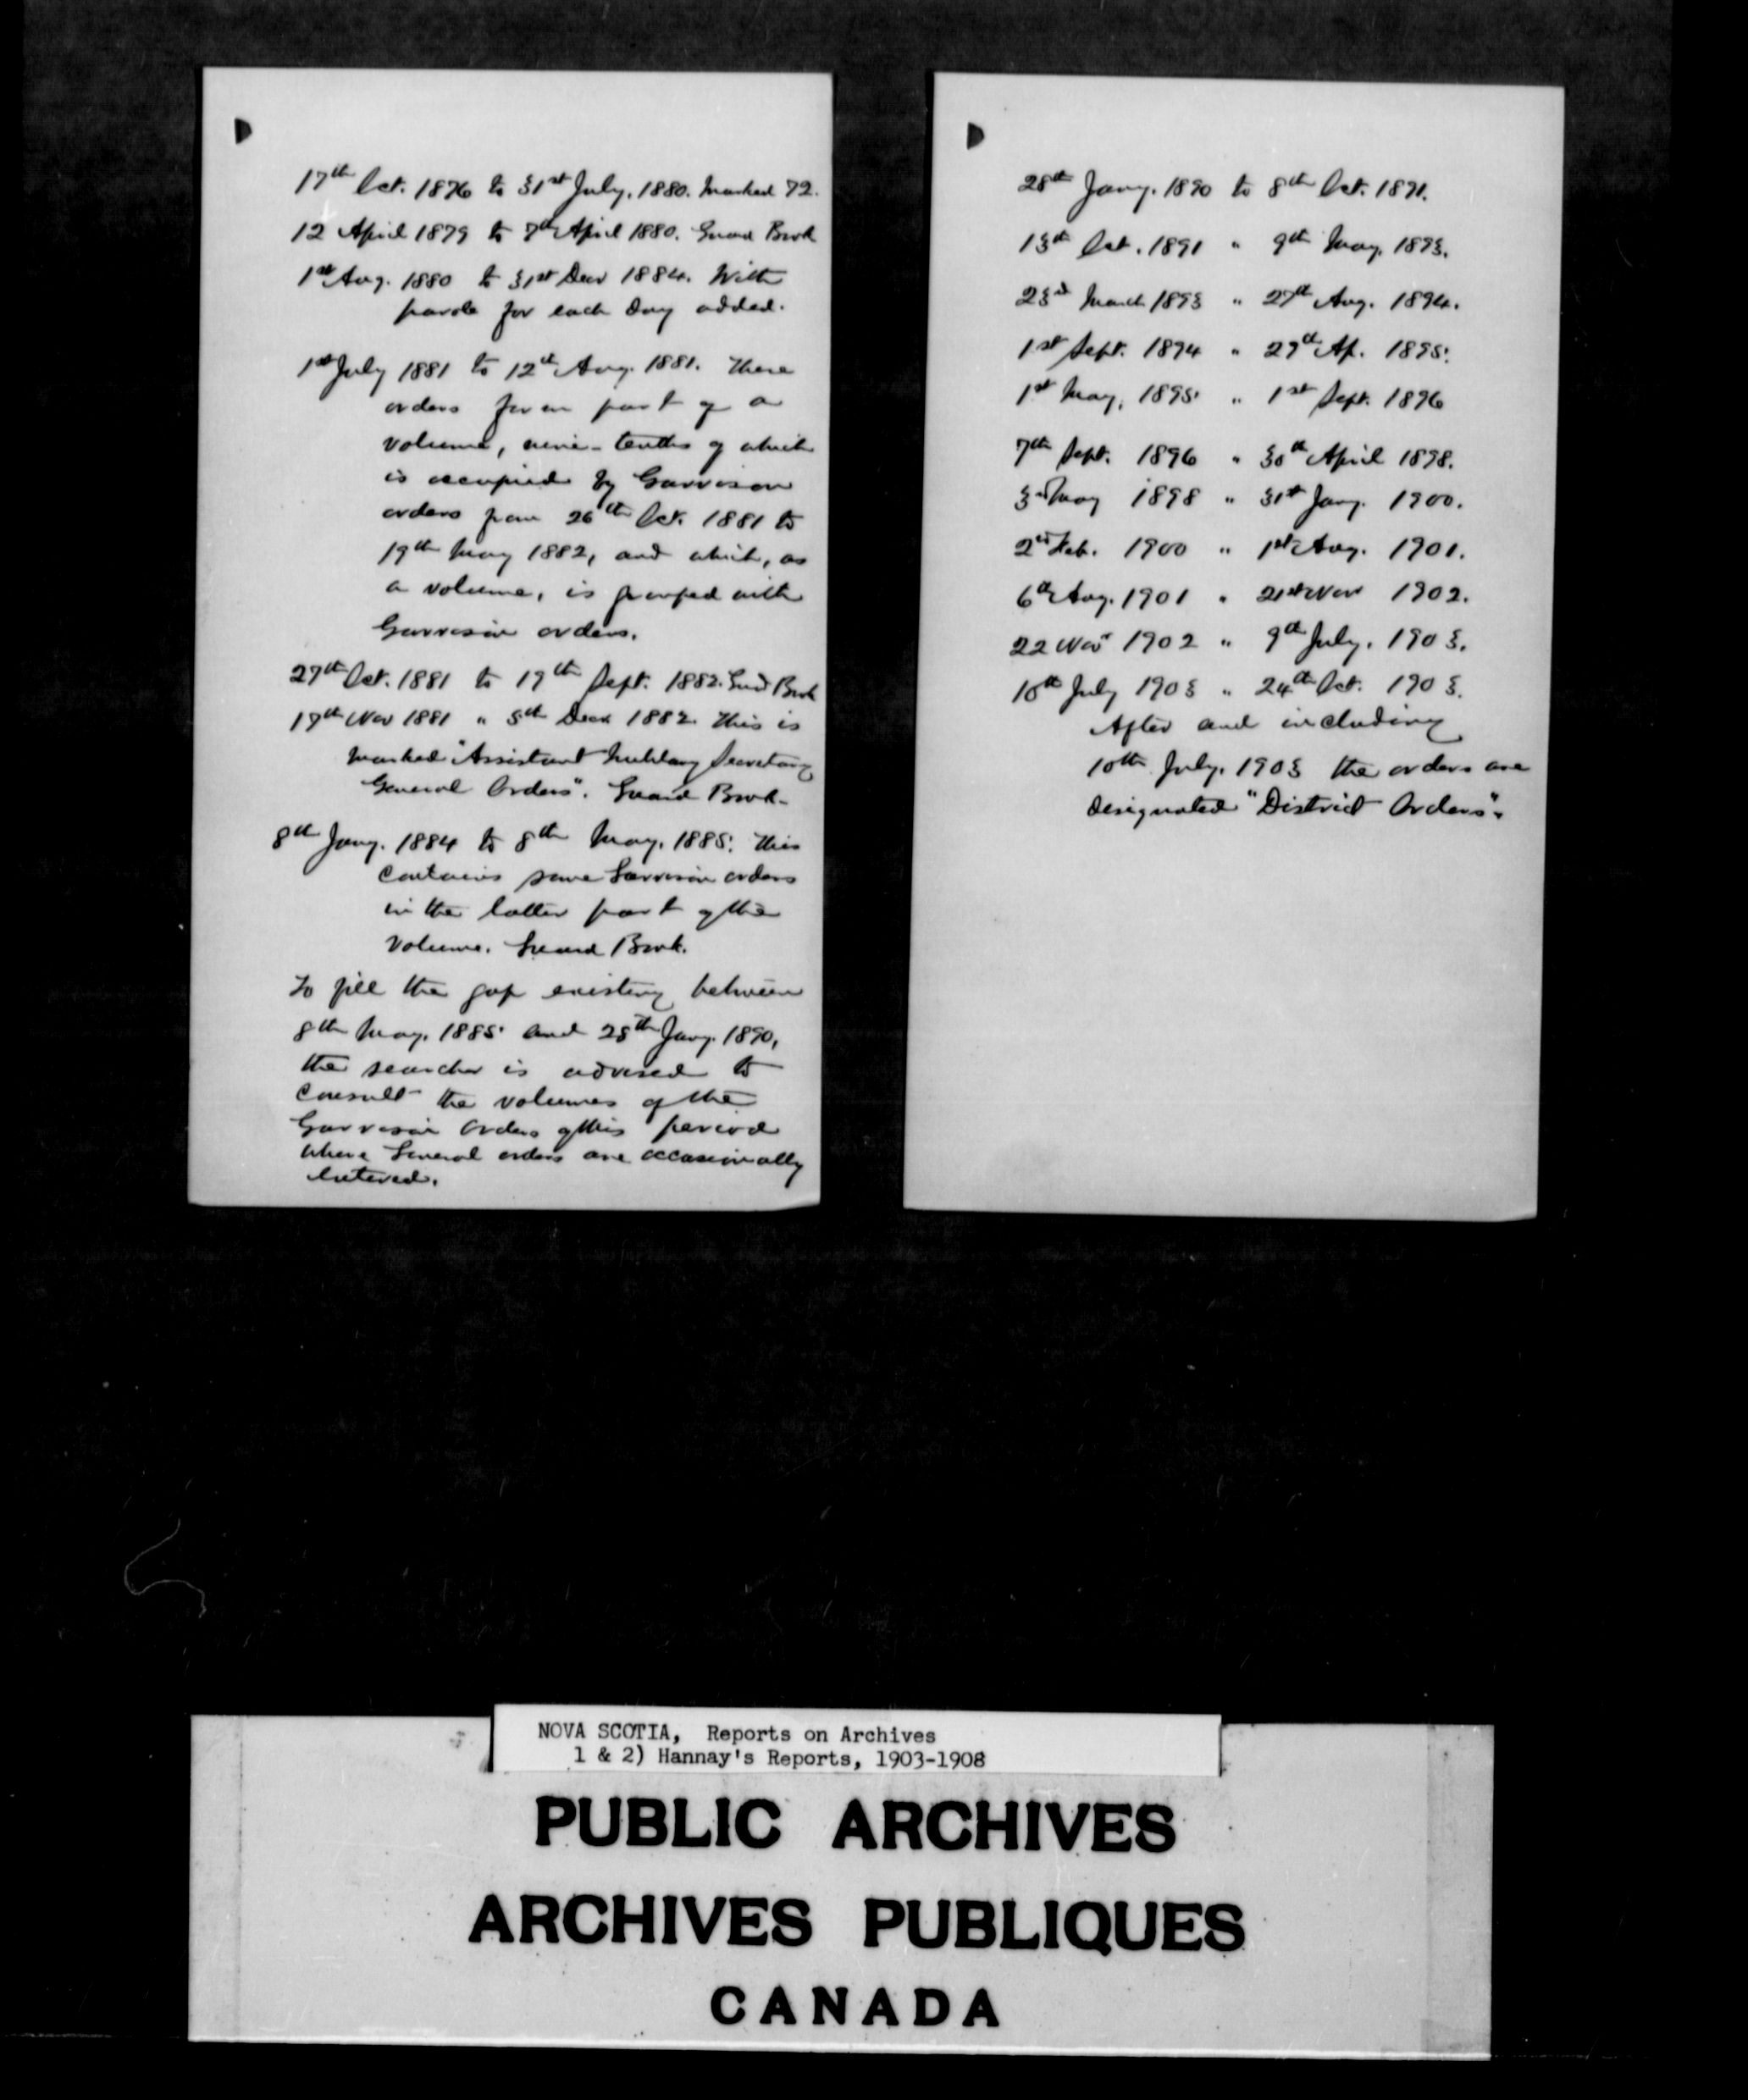 17th Oct. 1876 to 31st July, 1880. Marked 72.
12 April 1879 to 7th April 1880. Guard Book
1st Aug. 1880 to 31st Decr 1884. With
parole for each day added.
1st July 1881 to 12th Aug. 1881. These
orders form part of a
volume, nine-tenths of which
is occupied by Garrison
orders from 26th Oct. 1881 to
19th May 1882, and which, as
a volume, is grouped with
Garrison orders.
27th Oct. 1881 to 19th Sept. 1882. Guard Book
17th Nov 1881 " 5th Decr 1882. This is
marked "Assistant Military Secretary
General Orders". Guard Book.
8th Jany. 1884 to 8th May, 1885. This
contains some Garrison orders
in the latter part of the
volume. Guard Book.
To fill the gap existing between
8th May, 1885 and 28th Jany. 1890,
the searcher is advised to
consult the volumes of the
Garrison Orders of this period
where General orders are occasionally
entered.
28th Jany. 1890 to 8th Oct. 1891.
13th Oct. 1891 " 9th May, 1893.
23rd March 1893 " 27th Aug. 1894.
1st Sept. 1894 " 29th Ap. 1895.
1st May, 1895 " 1st Sept. 1896
7th Sept. 1896 " 30th April 1898.
3rd May 1898 " 31st Jany. 1900.
2nd Feb. 1900 " 1st Aug. 1901.
6th Aug. 1901 " 21st Nov 1902.
22 Novr 1902 " 9th July, 1903.
10th July 1903 " 24th Oct. 1903.
After and including
10th July, 1903 the orders are
designated "District Orders".
NOVA SCOTIA, Reports on Archives
1 & 2) Hannay's Reports, 1903-1908
PUBLIC ARCHIVES
ARCHIVES PUBLIQUES
CANADA